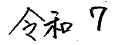 令和7